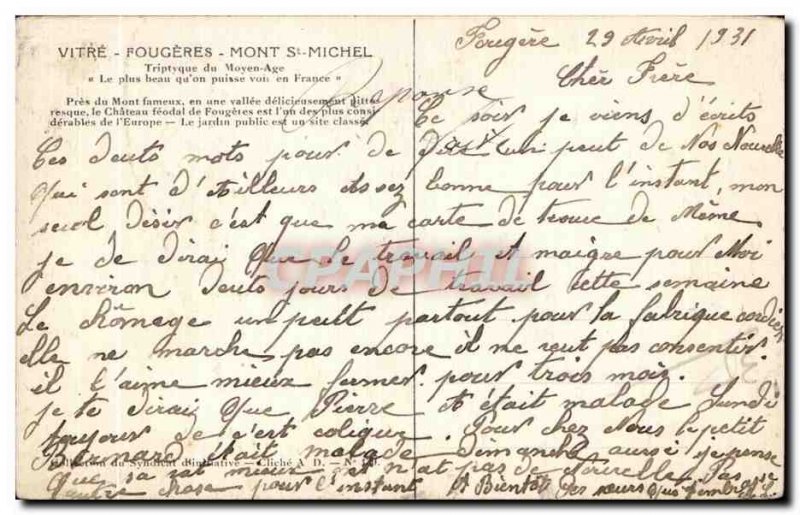 VITRÉ - FOUGÈRES - MONT St-MICHEL
Triptyque du Moyen-Age
« Le plus beau qu'on puisse voir en France »
Près du Mont fameux, en une vallée délicieusement pitto
resque, le Château féodal de Fougères est l'un des plus consi
dérables de l'Europe — Le jardin public est un site classé
Réponse
Fougère 29 Avril 1931
Cher Frère
Ce soir je viens d'écrits
Ces deuts mots pour de dire un peut de Nos Nouvelle
qui sont d'Ailleurs Assez bonne pour l'instant, mon
seul désir c'est que ma carte de trouve de Même
je de dirai que le travail et maigre pour Moi
environ deuts jours de travail cette semaine
Le chômege un petit partout pour la fabrique cordier
elle ne marche pas encore il ne veut pas consentir
il l'aime mieux fermer pour trois mois.
je te dirai que Pierre A était malade Lundi
toujours de c'est colique. Pour chez Nous le petit
Bernard était malade dimanche aussi je pense
Collection du Syndicat d'initiative — Cliché A. D. — N°
que sa est mieux n'at pas de Nouvelle Pas
autre chose pour l'instant A Bientôt des sœurs qui t'embrasse
CPAPHIL